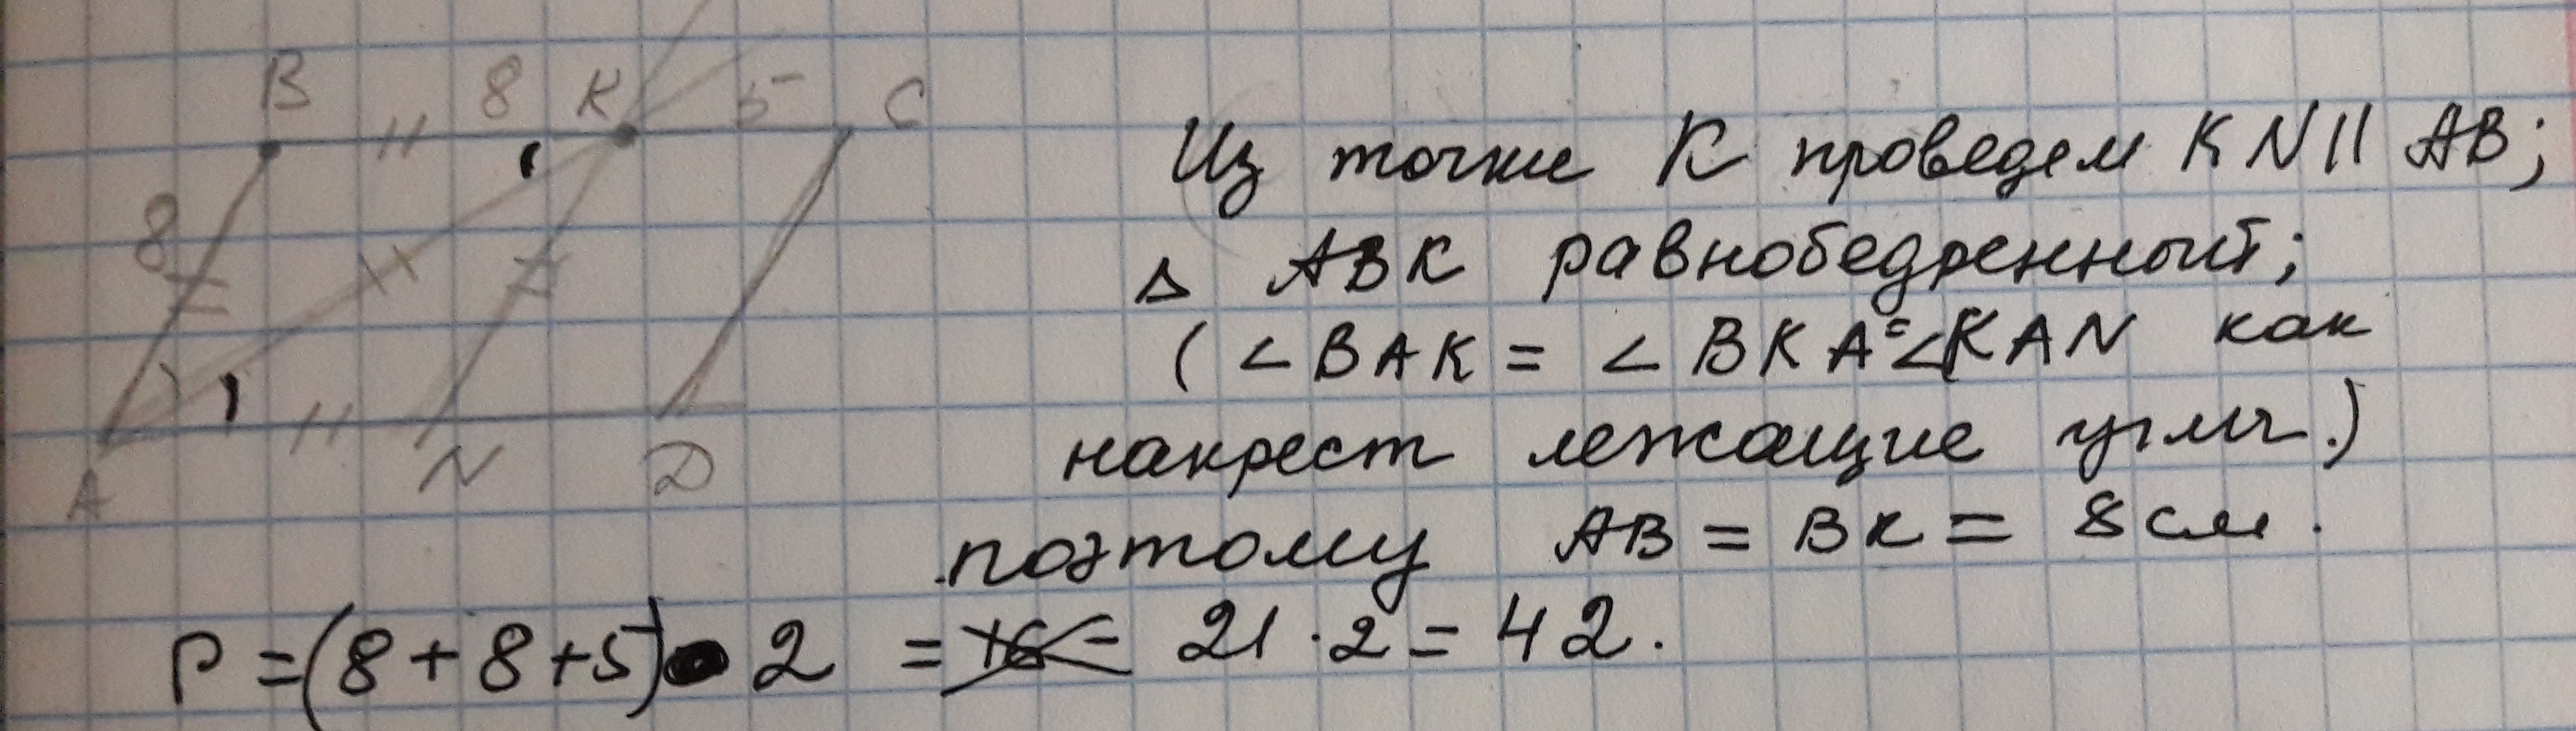 B 8 K 5 C
8
A N D
Из точки K проведем KN || AB;
△ ABK равнобедренный;
( ∠BAK = ∠BKA = ∠KAN как
накрест лежащие углы.)
поэтому AB = BK = 8 см.
P = (8 + 8 + 5) · 2 = 21 · 2 = 42.